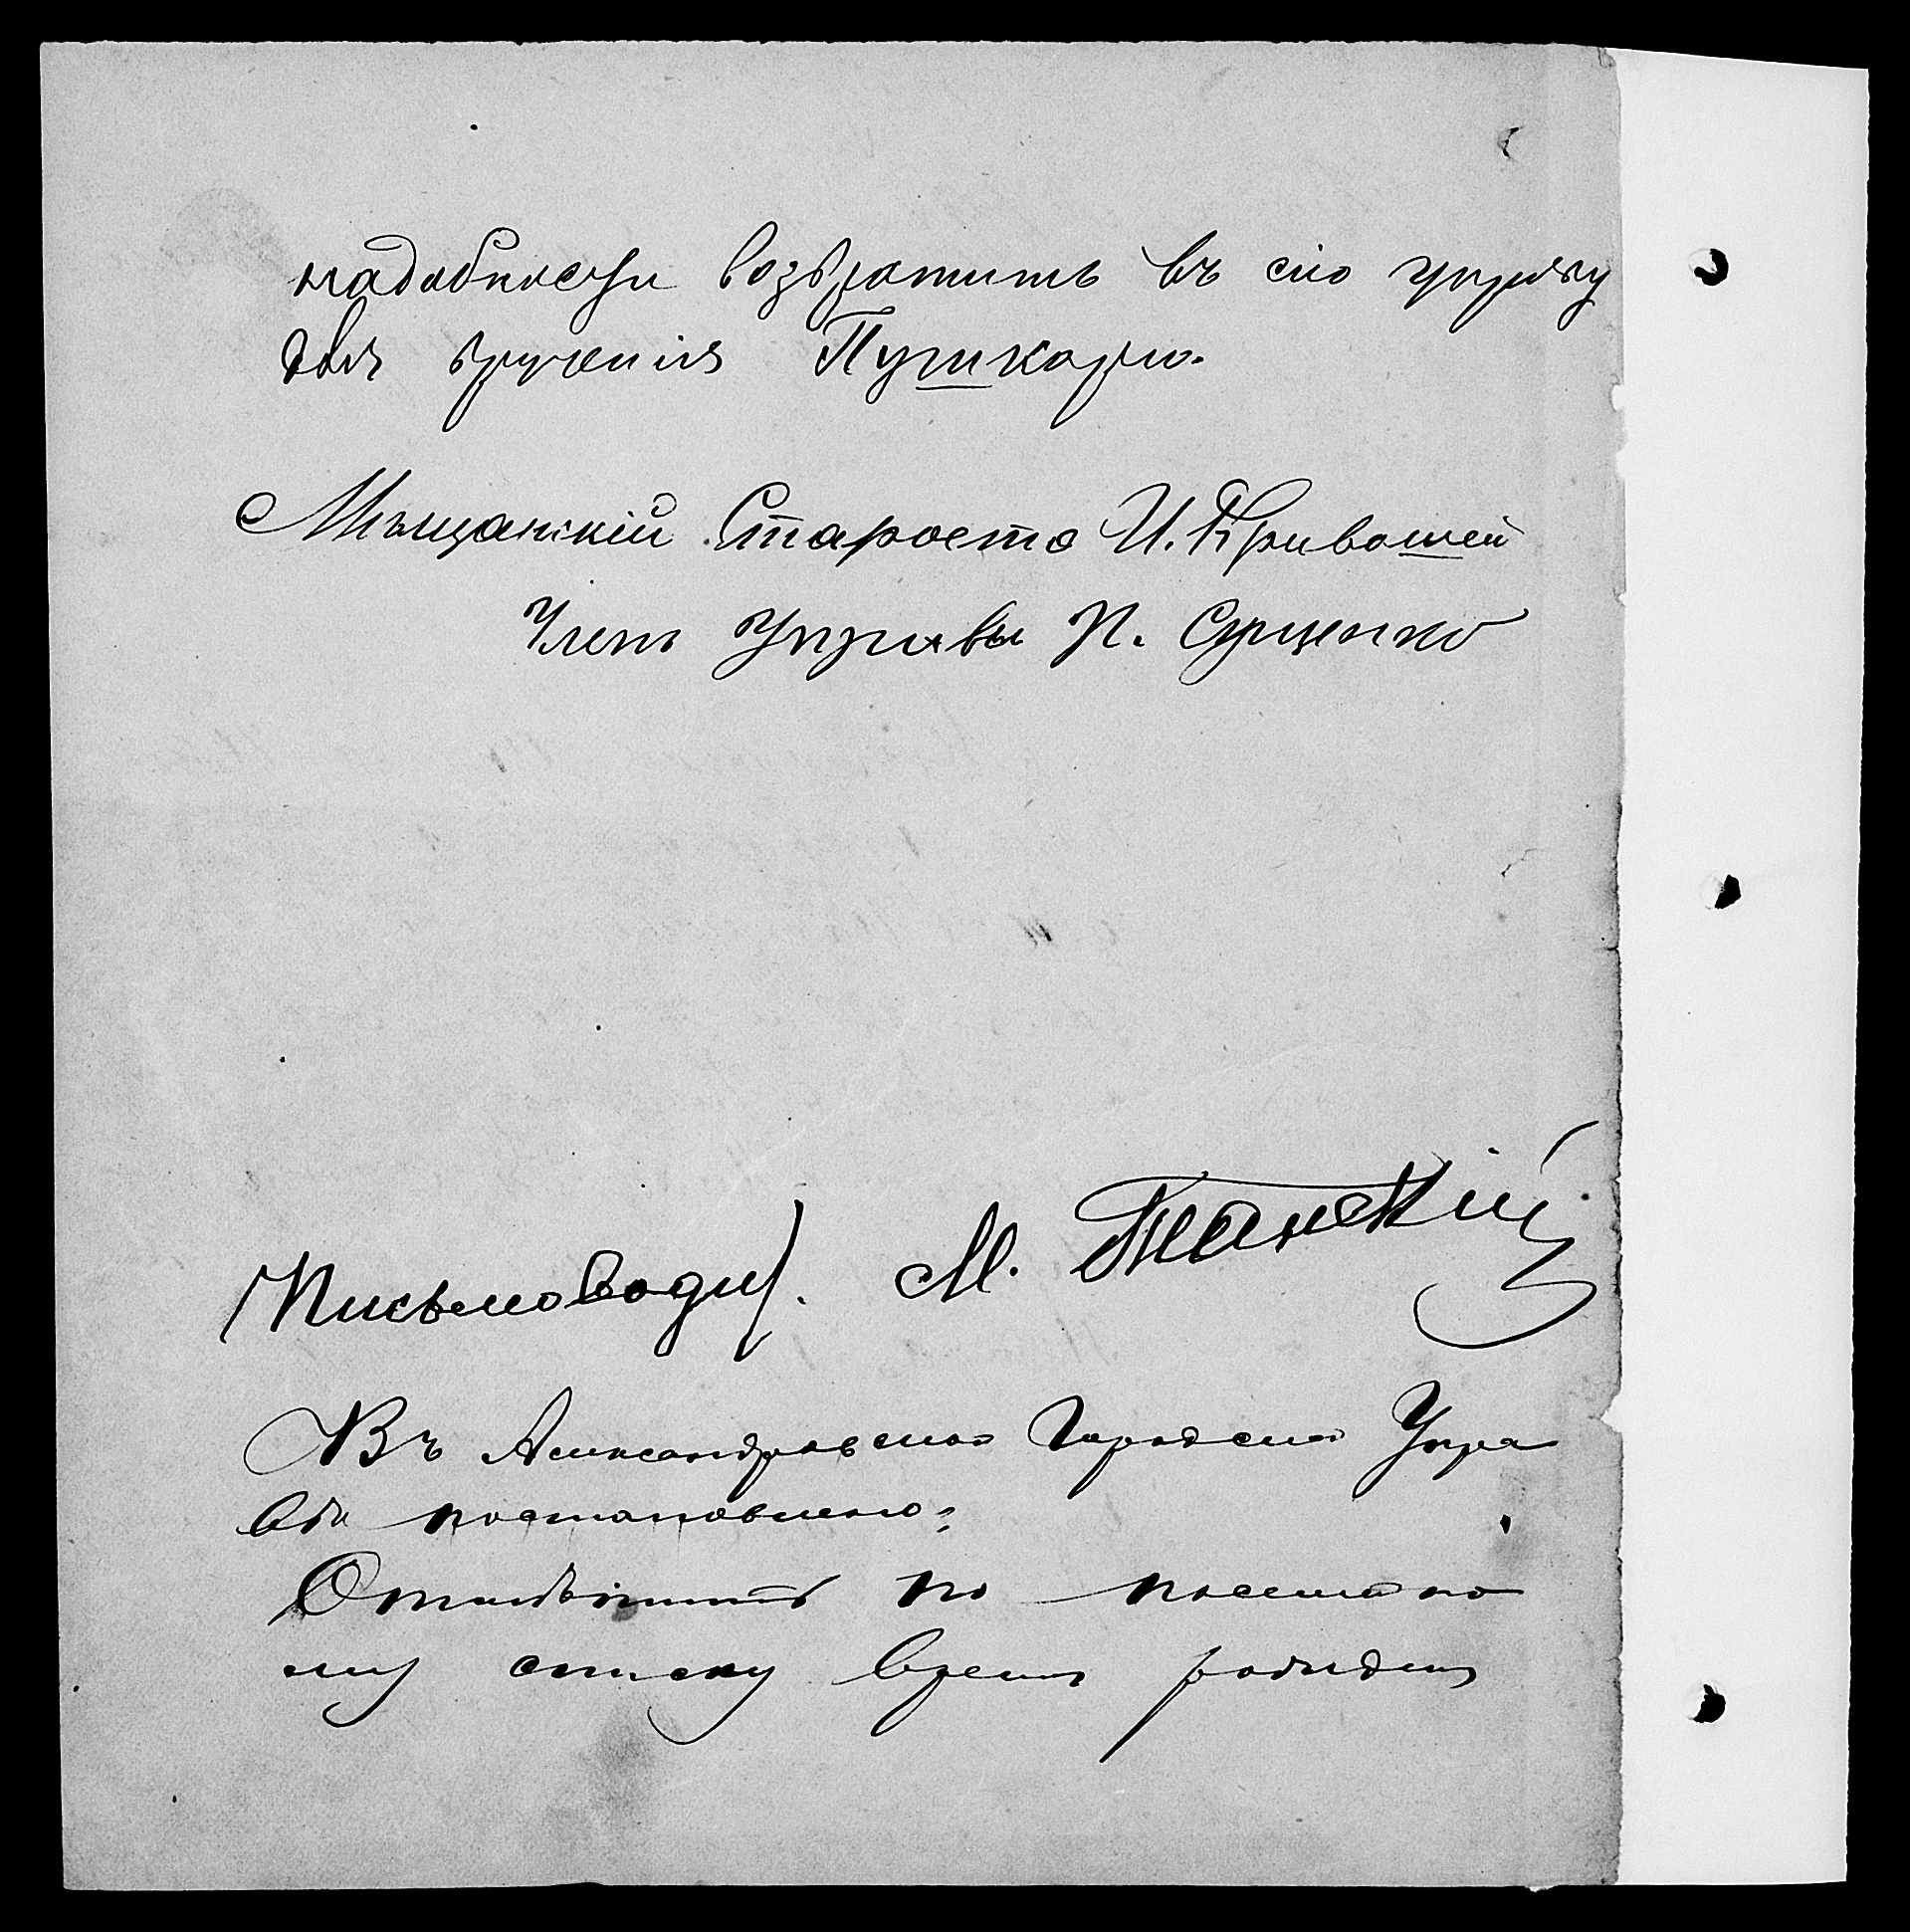 надобности возвратить въ сію управу
для врученія Пушкарю.
Мѣщанскій Староста И. Кривошей
Членъ Управы П.
Письмоводи. М.
Въ Александровской Городской Упра
вѣ постановлено:
Отмѣтить по посемейно
му списку время рожденія